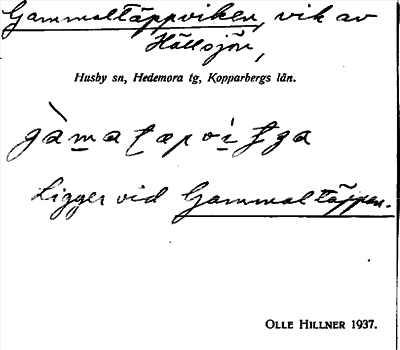 Gammaltäppviken, vik av
Hällsjön,
Husby sn, Hedemora tg, Kopparbergs län.
Ligger vid Gammaltäppen.
OLLE HILLNER 1937.